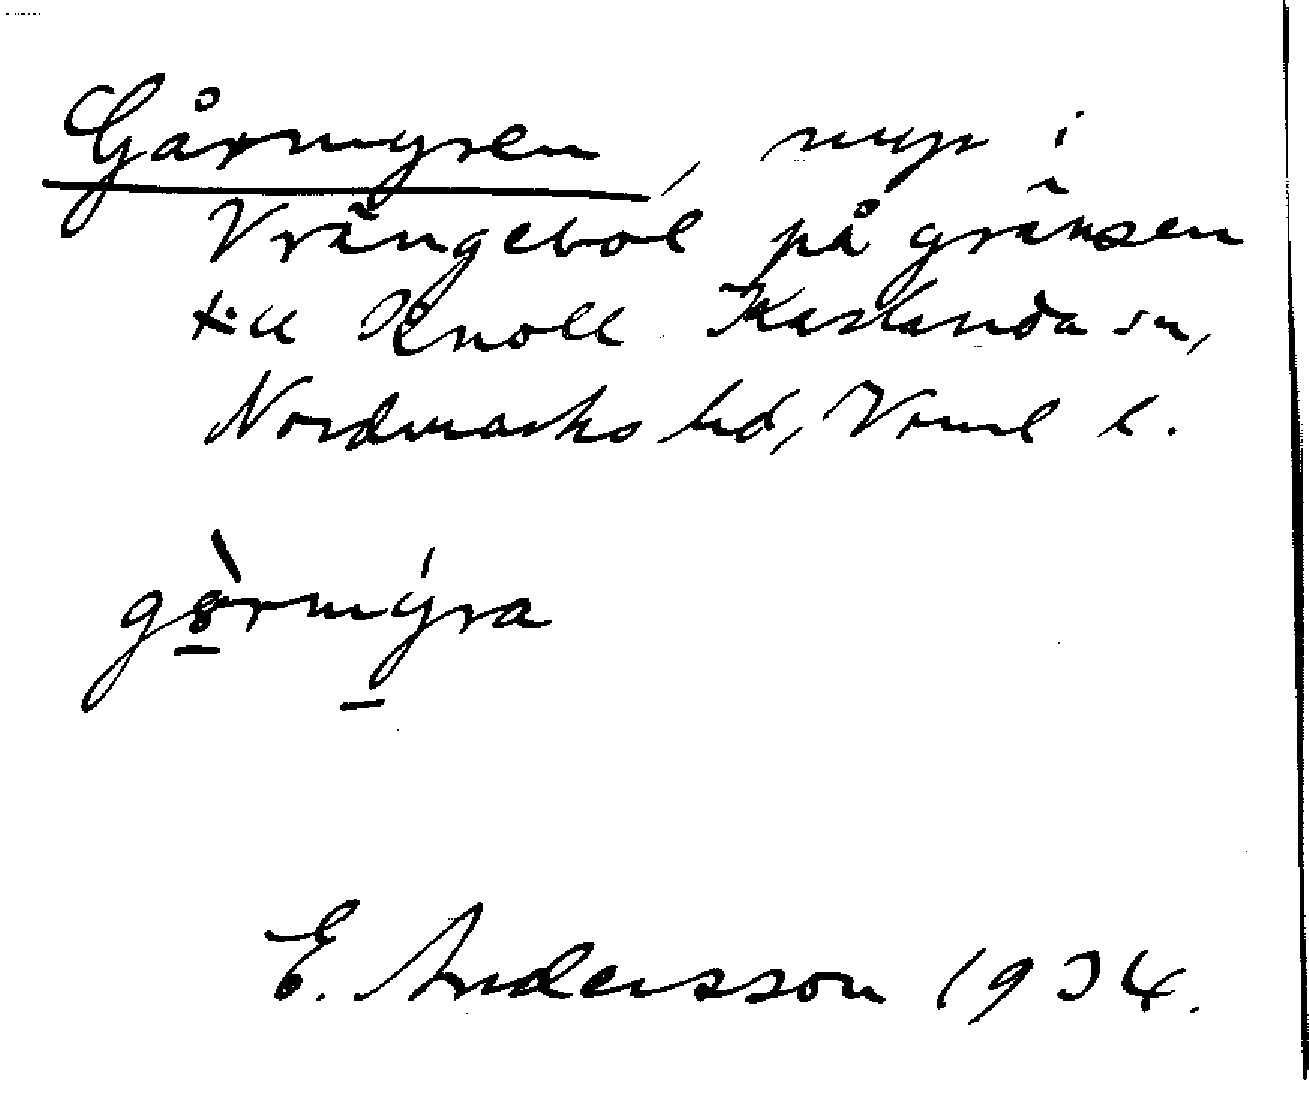 Gårmyren, myr i
Vrängebol på gränsen
till Knoll Karlanda sn,
Nordmarks hd, Vrml l.
gårmýra
E. Andersson 1934.